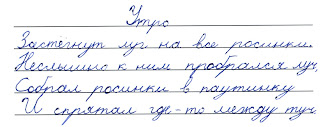 Утро
Застегнут луг на все росинки.
Неслышно к ним пробрался луч,
Собрал росинки в паутинку
И спрятал где-то между туч.